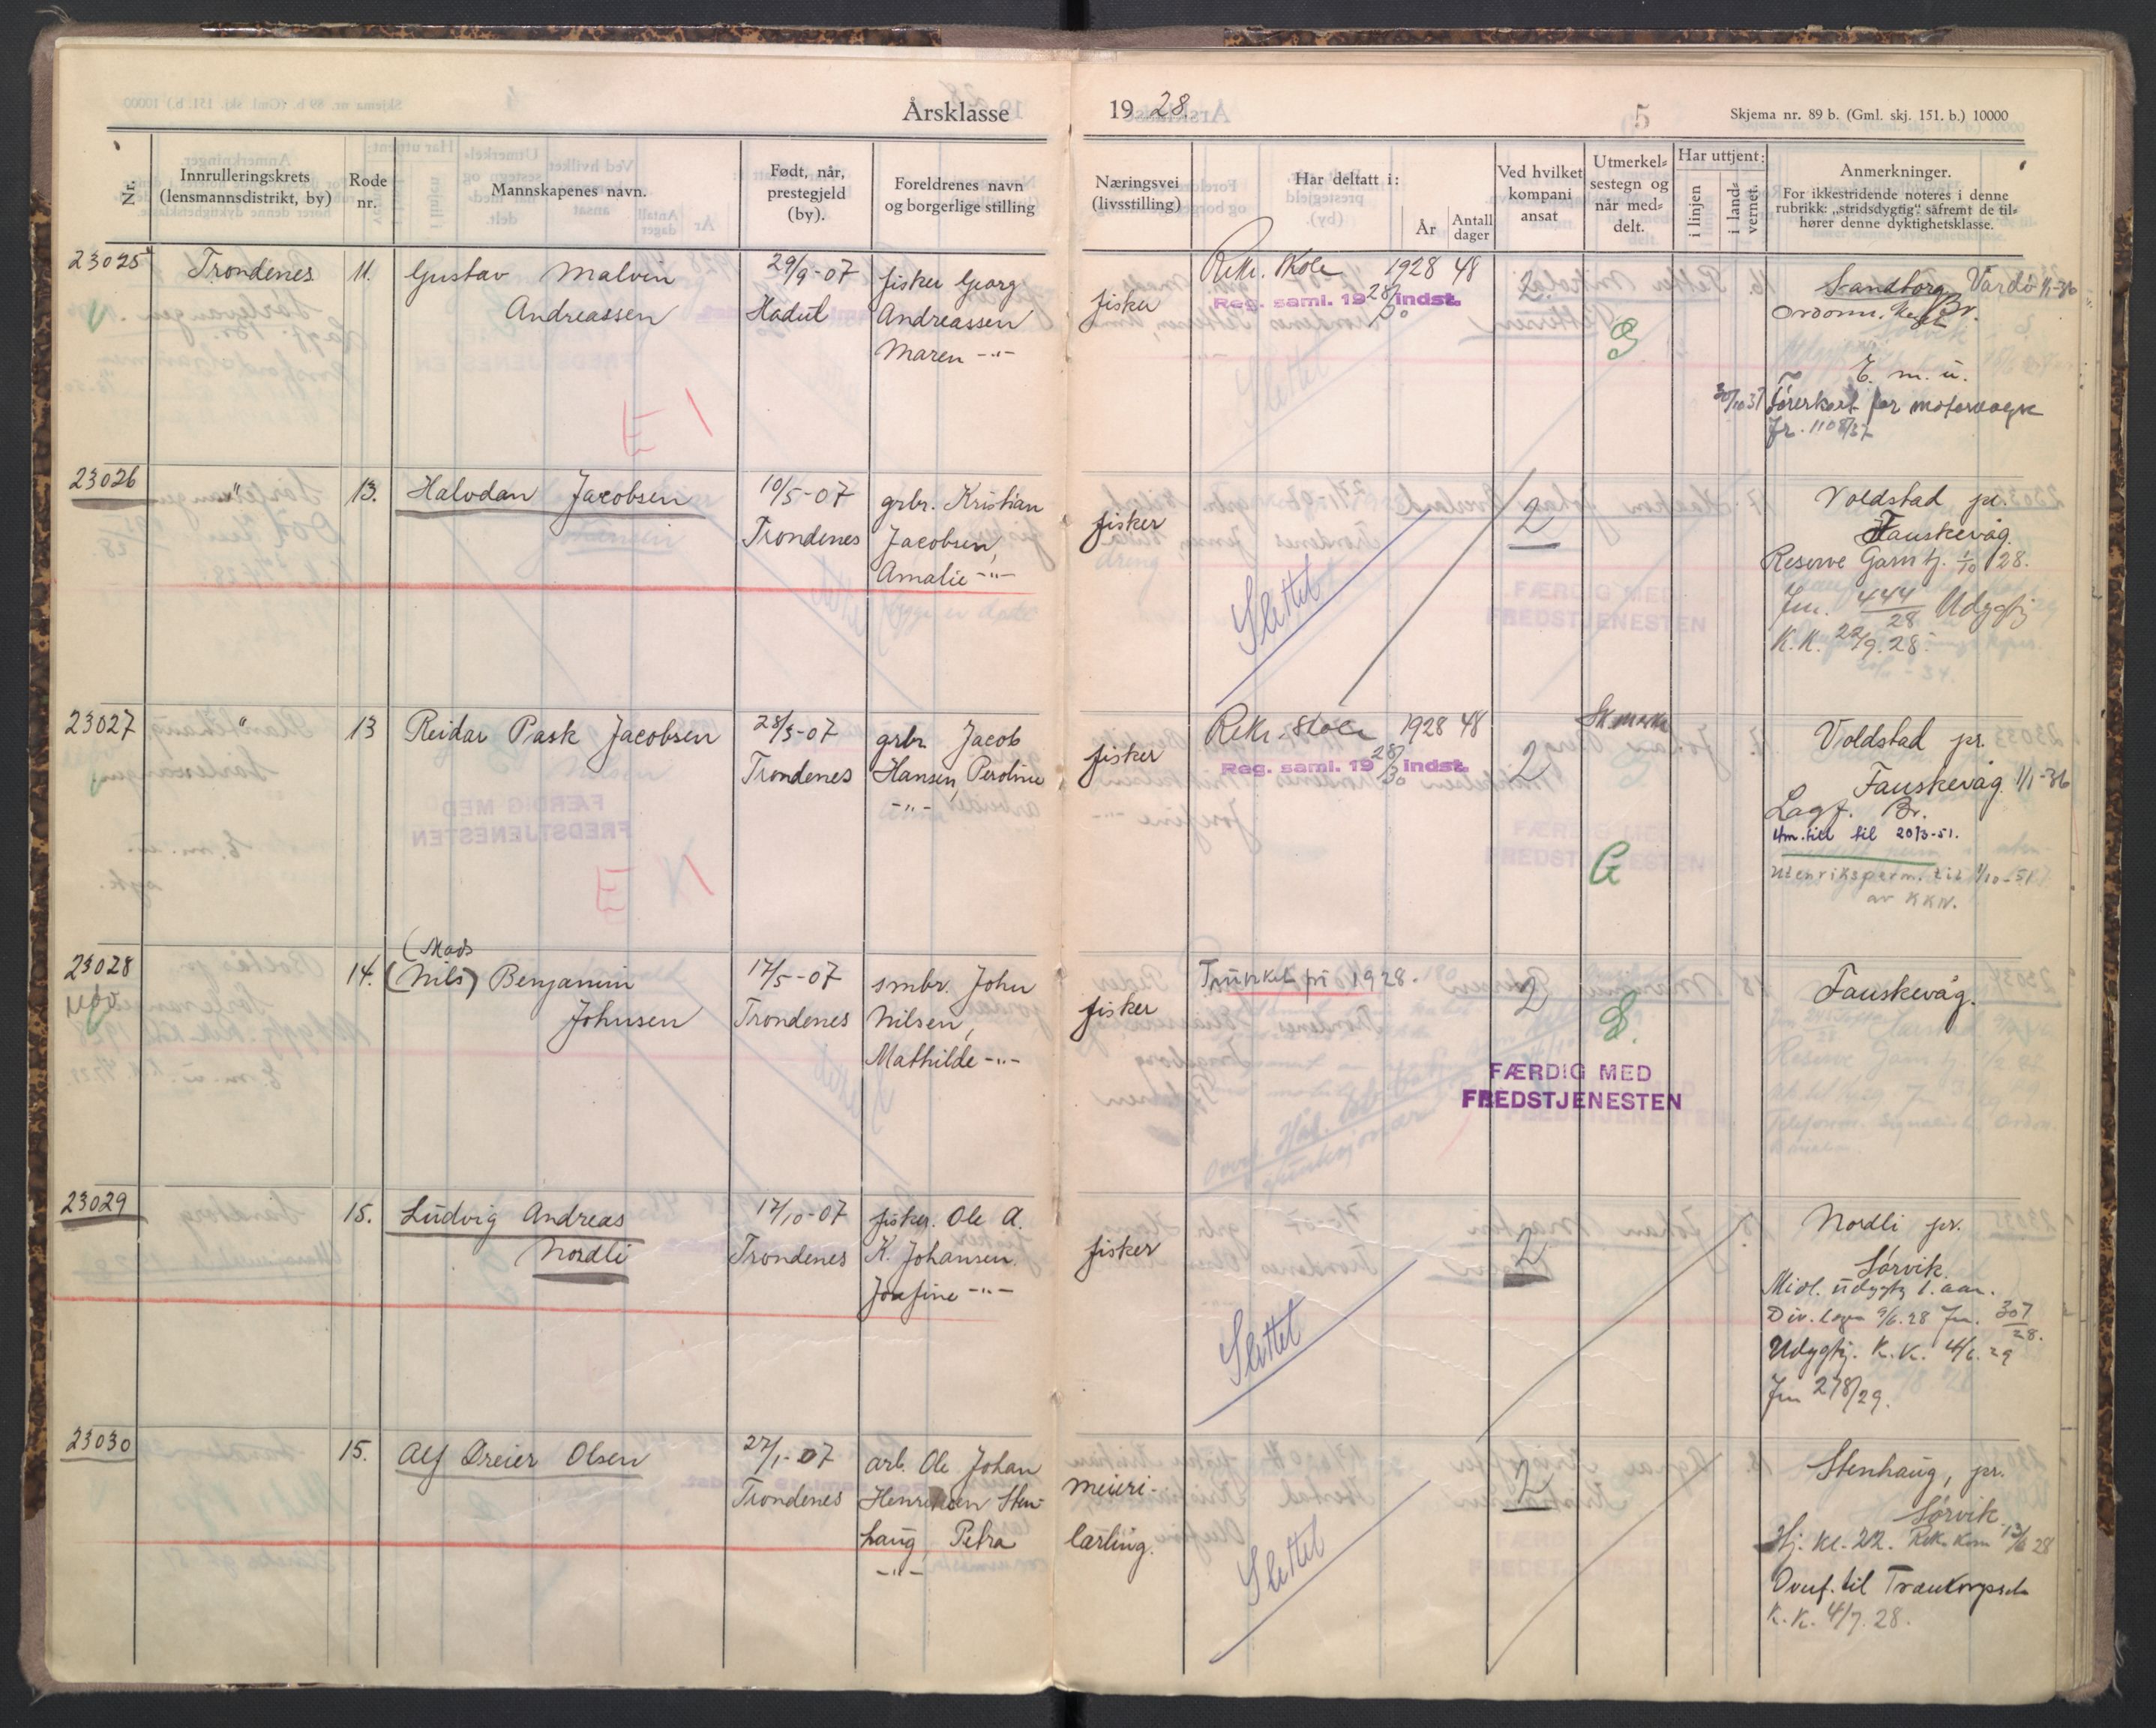 Årsklasse 1928.
5
Skjema nr. 89 b. (Gml. skj. 151. b.) 10000
Nr.
Innrulleringskrets
(lensmannsdistrikt, by)
Rode
nr.
Mannskapenes navn.
Født, når,
prestegjeld
(by).
Foreldrenes navn
og borgerlige stilling
Næringsvei
(livsstilling)
Har deltatt i:
År
Antall
dager
Ved hvilket
kompani
ansat
Utmerkel-
sestegn og
når med-
delt.
Har uttjent:
i linjen
i land-
vernet.
Anmerkninger.
For ikkestridende noteres i denne
rubrikk: „stridsdygtig" såfremt de til-
hører denne dyktighetsklasse.
23025
Trondenes
11.
Gustav Malvin
Andreassen
29/9-07
Hadsel
fisker Georg
Andreassen
Maren -"-
fisker
Rekr. skole 1928 48
Reg. saml. 1928/30 indst.
2
G
Sandborg Vardö 1/1-36
Ordonn. Br.
E. m. u.
30/10 37 Førerkort for motorvogn
Jr. 1108/37
E
23026
"
13.
Halvdan Jacobsen
10/5-07
Trondenes
grbr. Kristian
Jacobsen,
Amalie -"-
fisker
Slettet
2
Voldstad pr.
Fauskevåg.
Reserve Garn tj. 1/10 28.
Jnr. 444/28 Udygtj
K.K. 22/9.28.
23027
"
13
Reidar Pask Jacobsen
28/3-07
Trondenes
grbr. Jacob
Hansen, Peroline
-"-
fisker
Rekr. skole 1928 48
Reg. saml. 1928/30 indst.
2
Sk.merke
G
Voldstad pr.
Fauskevåg. 1/1-36
Lagf. Br.
Utenriksperm. til 1/10-51
av KKN.
E
23028
14.
(Mads
(Nils) Benjamin
Johnsen
17/5-07
Trondenes
smbr. John
Nilsen,
Mathilde -"-
fisker
1928.
2
FÆRDIG MED
FREDSTJENESTEN
Fauskevåg.
23029
15.
Ludvig Andreas
Nordli
17/10-07
Trondenes
fisker. Ole A.
K. Johansen.
Josefine -"-
fisker
Slettet
2
Nordli pr.
Sørvik.
Midl. udygtg 1. aar.
Div. legen 9/6.28 Jnr. 307/28.
Udygtj. K.K. 4/6.29
Jnr 278/29.
23030
15.
Alf Dreier Olsen
27/1-07
Trondenes
arb. Ole Johan
Henriksen Sten-
haug, Petra
-"-
meieri-
lærling.
Slettet
2
Stenhaug, pr.
Sørvik
Hj. kl. 22. Rek. Kom 13/6 28
Overf. til Trænkorpset
K.K. 4/7.28.